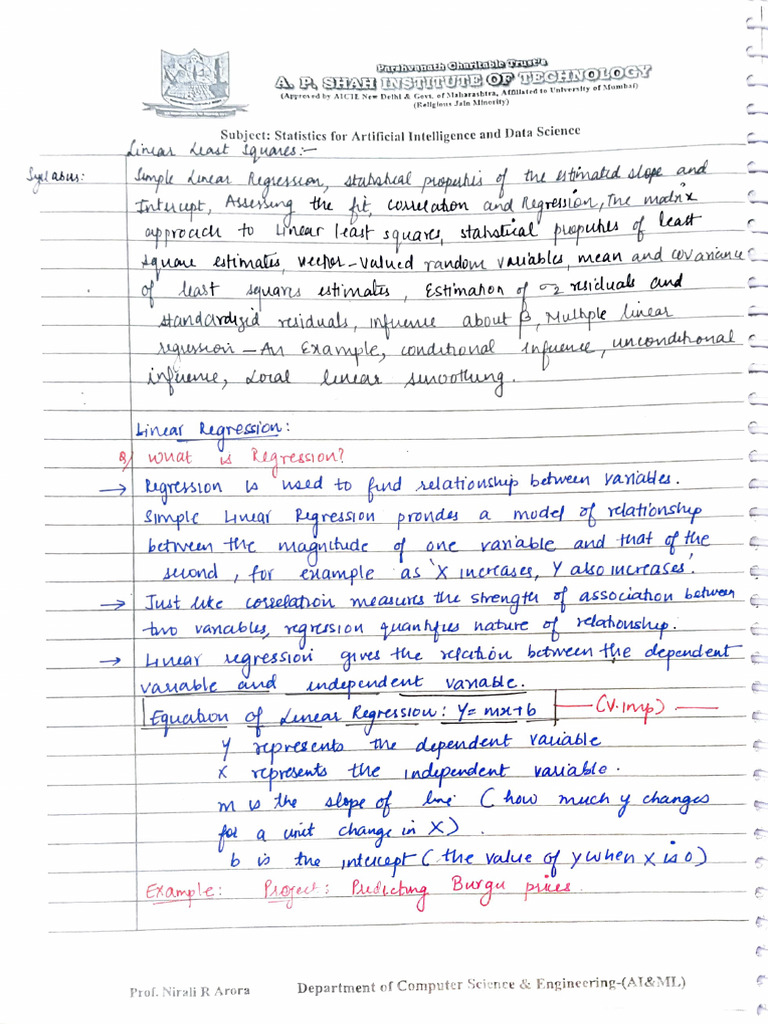 Parshvanath Charitable Trust's
A. P. SHAH INSTITUTE OF TECHNOLOGY
(Approved by AICTE New Delhi & Govt. of Maharashtra, Affiliated to University of Mumbai)
(Religious Jain Minority)
Subject: Statistics for Artificial Intelligence and Data Science
Linear Least Squares:-
Syllabus: Simple Linear Regression, statistical properties of the estimated slope and
Intercept, Assessing the fit, correlation and Regression, The matrix
approach to linear least squares, statistical properties of least
square estimates, vector-valued random variables, mean and covariance
of least squares estimates, Estimation of σ2 residuals and
standardized residuals, influence about β, Multiple linear
regression - An Example, conditional influence, unconditional
influence, Local linear smoothing.
Linear Regression:
Q/ What is Regression?
→ Regression is used to find relationship between variables.
Simple Linear Regression provides a model of relationship
between the magnitude of one variable and that of the
second, for example as 'X increases, Y also increases'.
→ Just like correlation measures the strength of association between
two variables, regression quantifies nature of relationship.
→ Linear regression gives the relation between the dependent
variable and independent variable.
Equation of Linear Regression: Y=mx+b (V.imp)
Y represents the dependent variable
X represents the independent variable.
m is the slope of line (how much y changes
for a unit change in X).
b is the intercept (the value of y when X is 0)
Example: Project: Predicting Burger prices.
Prof. Nirali R Arora Department of Computer Science & Engineering-(AI&ML)